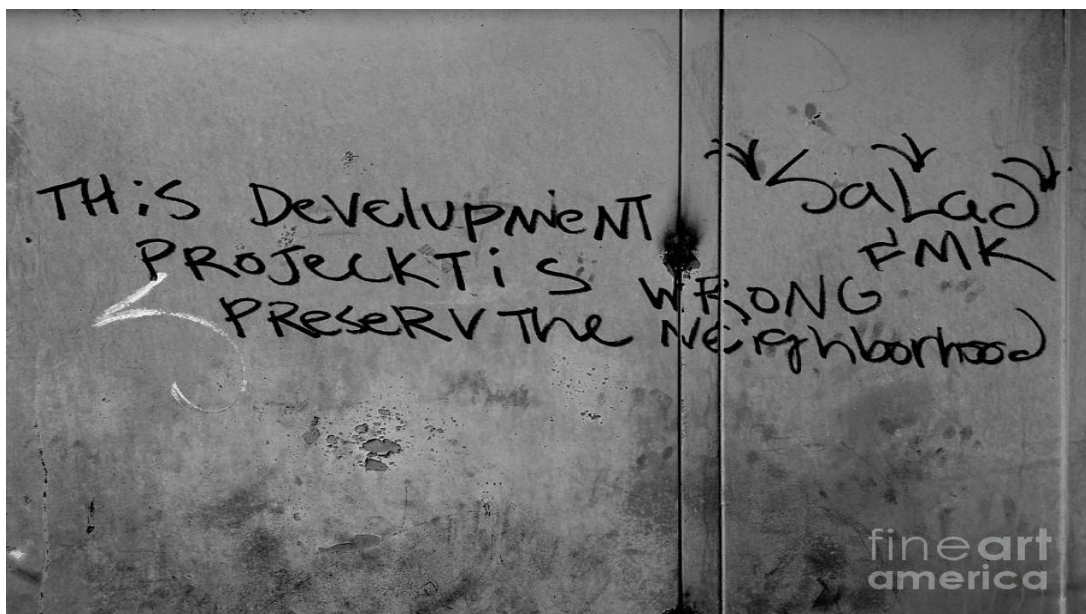 THiS DeVelupmeNT
PROJeckT iS WRONG
PReSeRV The Neighborhood
SaLad
FMK
fineart
america